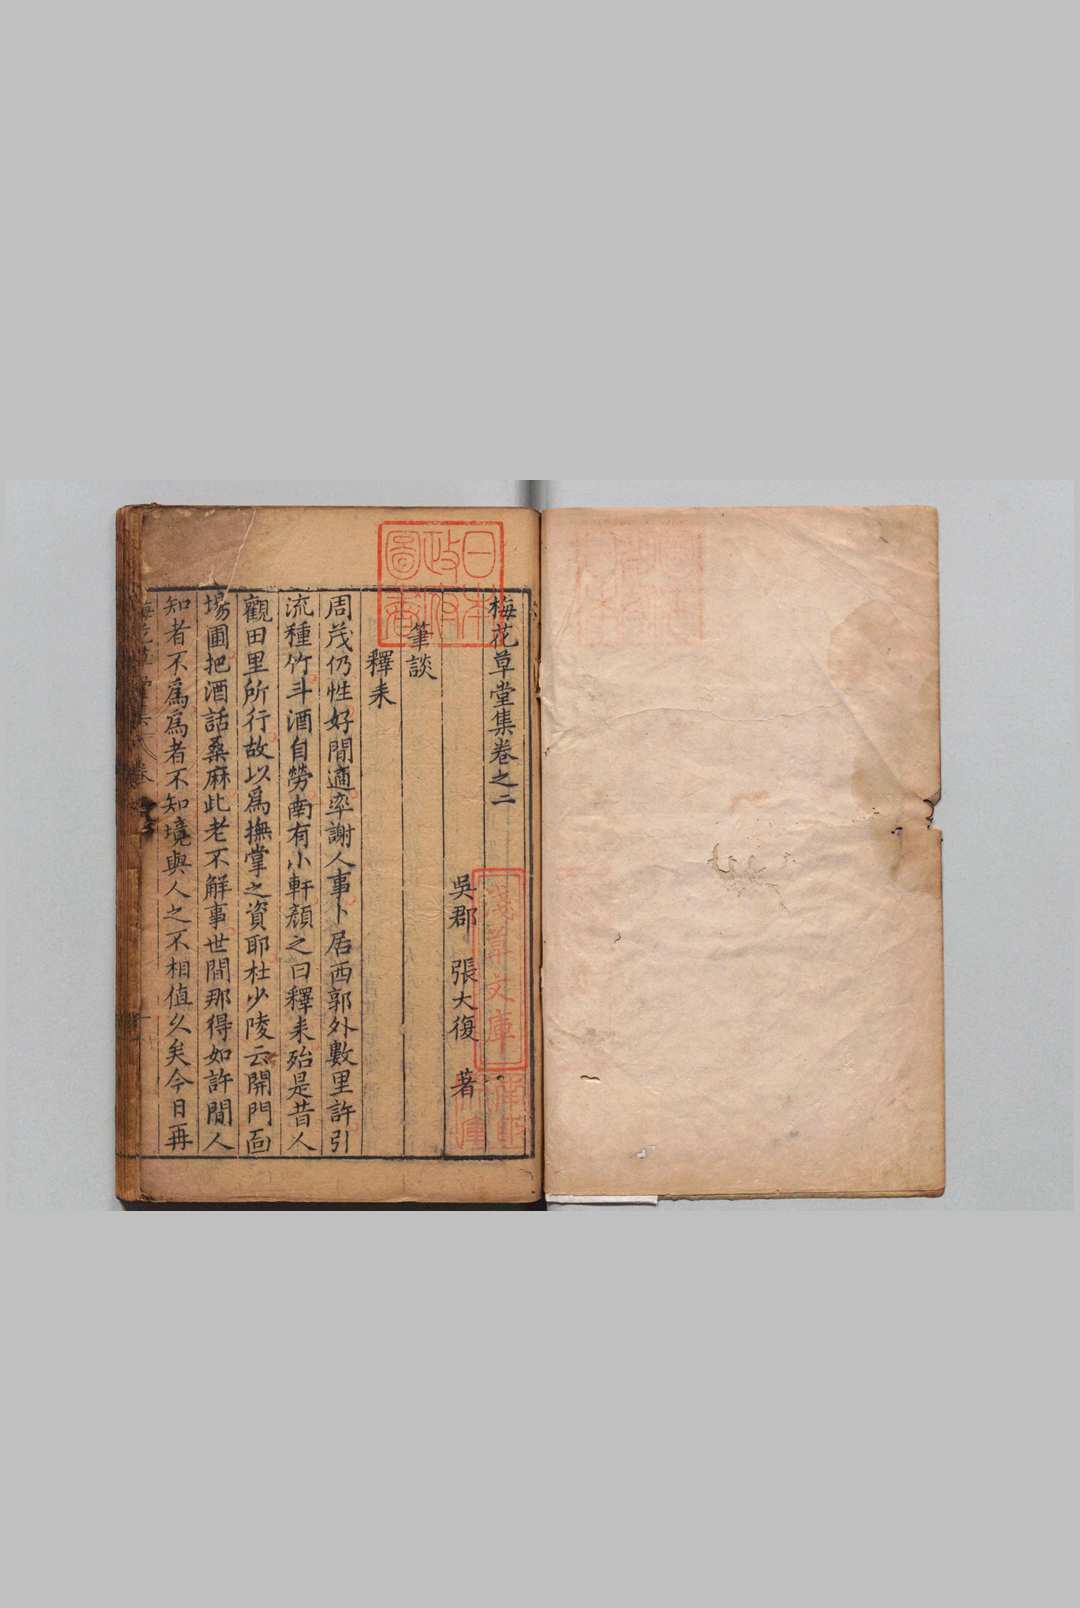 梅花草堂集卷之二
吳郡 張大復 著
筆談
釋耒
周茂仍性好閒適率謝人事卜居西郭外數里許引
流種竹斗酒自勞南有小軒顏之曰釋耒殆是昔人
觀田里所行故以爲撫掌之資耶杜少陵云開門面
場圃把酒話桑麻此老不解事世間那得如許閒人
知者不爲爲者不知境與人之不相值久矣今日再
日本
政府
圖書
淺草文庫